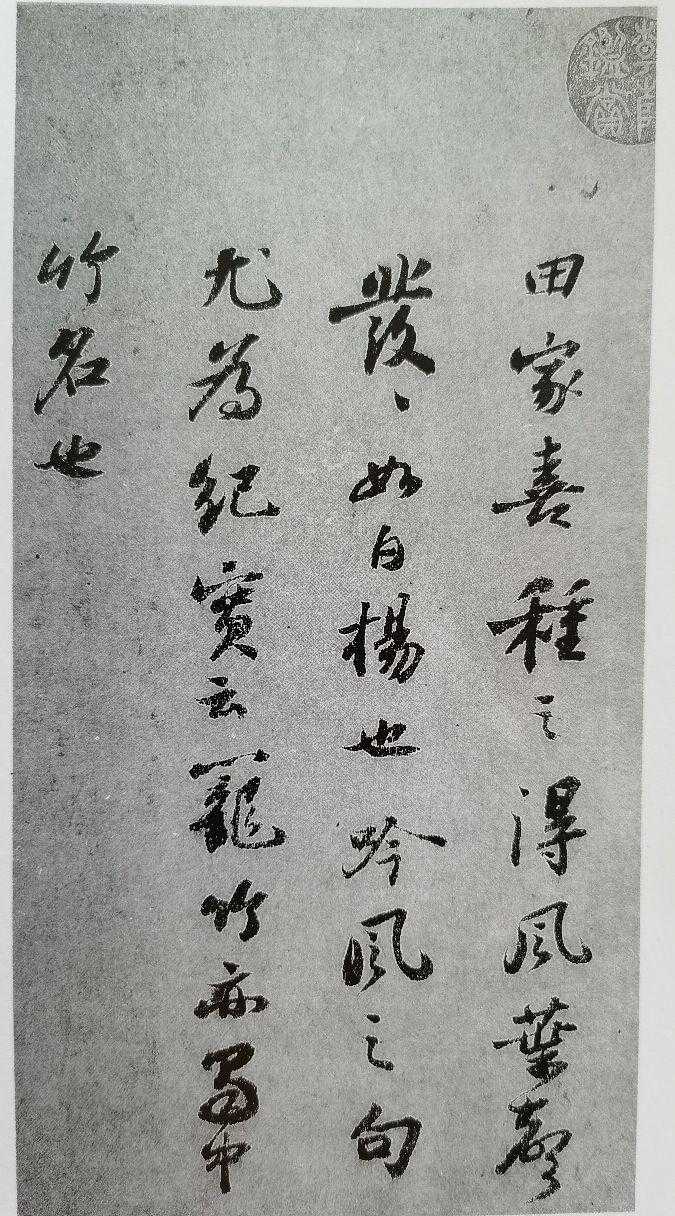 田家喜種之得風葉聲
發〻如白楊也吟風之句
尤為紀實云籠竹亦蜀中
竹名也